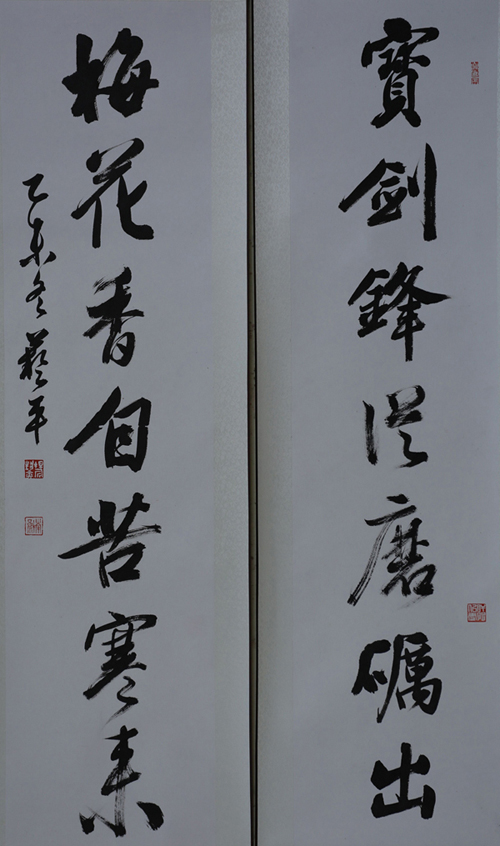 寶劍鋒從磨礪出
梅花香自苦寒來
乙未冬藝平